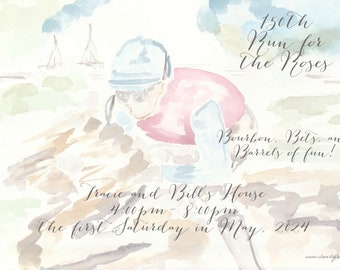 150th
Run for
the Roses
Bourbon, Bets, an
Barrels of fun!
Tracie and Bill's House
4:00pm - 8:00pm
The first Saturday in May, 2024